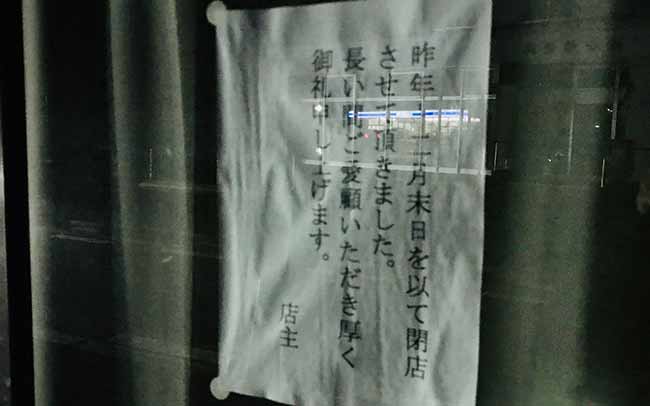 昨年十二月末日を以て閉店
させて頂きました。
長い間ご愛顧いただき厚く
御礼申し上げます。
店主